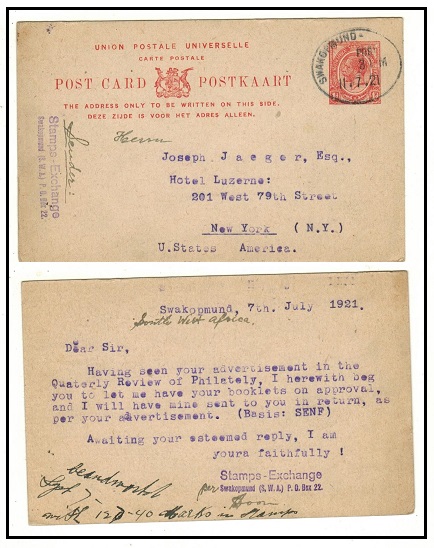 UNION POSTALE UNIVERSELLE
CARTE POSTALE
POST CARD POSTKAART
THE ADDRESS ONLY TO BE WRITTEN ON THIS SIDE.
DEZE ZIJDE IS VOOR HET ADRES ALLEEN.
SWAKOPMUND
11.7.21
Sender:
Stamps-Exchange
Swakopmund (S.W.A.) P.O. Box 22.
Herrn
Joseph Jaeger, Esq.,
Hotel Luzerne:
201 West 79th Street
New York (N.Y.)
U.States America.
Swakopmund, 7th. July 1921.
South West Africa.
Dear Sir,
Having seen your advertisement in the
Quaterly Review of Philately, I herewith beg
you to let me have your booklets on approval,
and I will have mine sent to you in return, as
per your advertisement. (Basis: SENF)
Awaiting your esteemed reply, I am
youra faithfully !
Stamps-Exchange
per Swakopmund (S.W.A.) P.O. Box 22.
with in Stamps